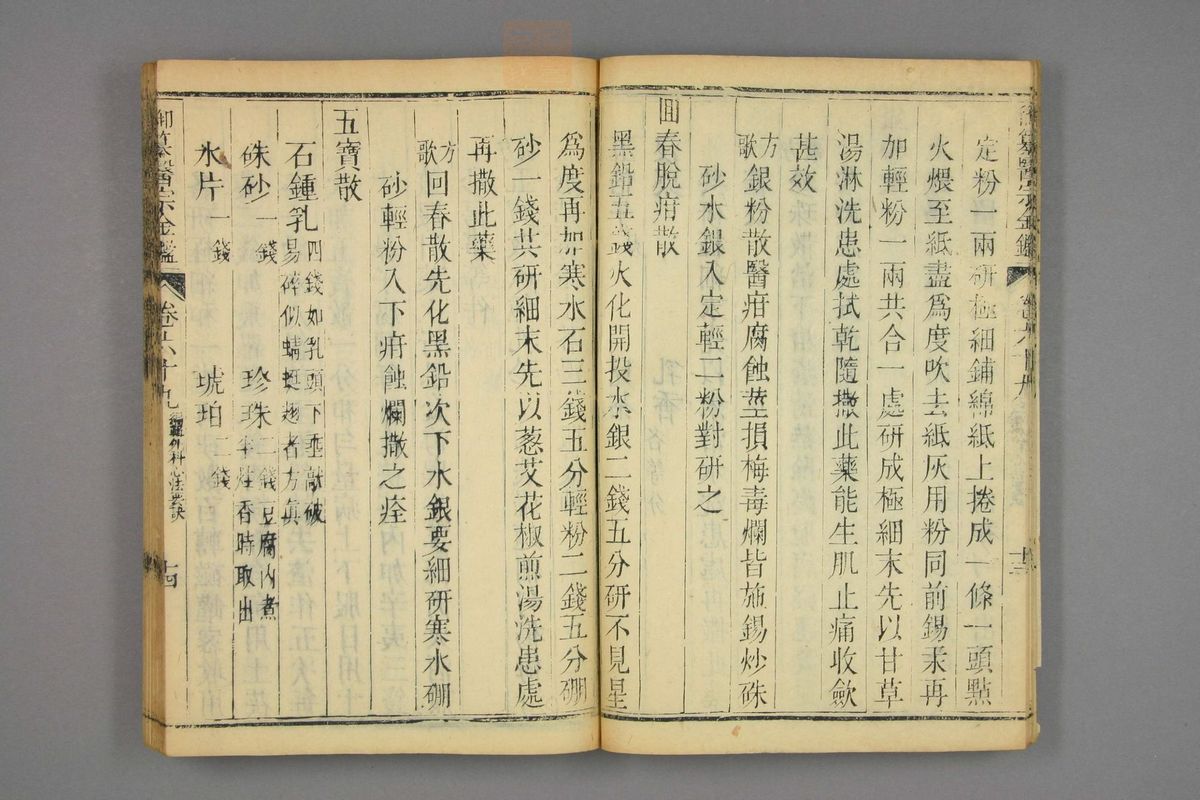 定粉一兩研極細鋪綿紙上捲成一條一頭點
火煨至紙盡爲度吹去紙灰用粉同前錫汞再
加輕粉一兩共合一處研成極細末先以甘草
湯淋洗患處拭乾隨撒此藥能生肌止痛收斂
甚效
方歌 銀粉散醫疳腐蝕莖損梅毒爛皆施錫炒硃
砂水銀入定輕二粉對研之
回春脫疳散
黑鉛五錢火化開投水銀二錢五分研不見星
爲度再加寒水石三錢五分輕粉二錢五分硼
砂一錢共研細末先以葱艾花椒煎湯洗患處
再撒此藥
方歌 回春散先化黑鉛次下水銀要細研寒水硼
砂輕粉入下疳蝕爛撒之痊
五寶散
石鍾乳四錢如乳頭下垂敲破易碎似蜻蜓翅者方真
硃砂一錢 珍珠二錢豆腐內煮半炷香時取出
氷片一錢 琥珀二錢
御纂醫宗金鑑 卷六十九 編輯外科心法要訣 十四